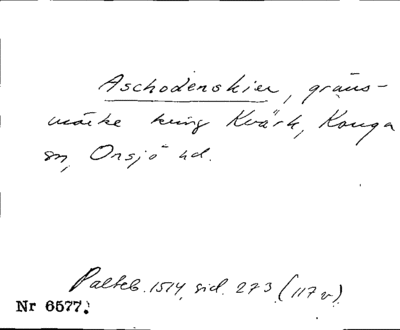 Aschodenskier, gräns-
märke kring Kvärk, Konga
sn, Onsjö hd.
Palteb. 1514, sid. 273 (117 v).
Nr 6577.